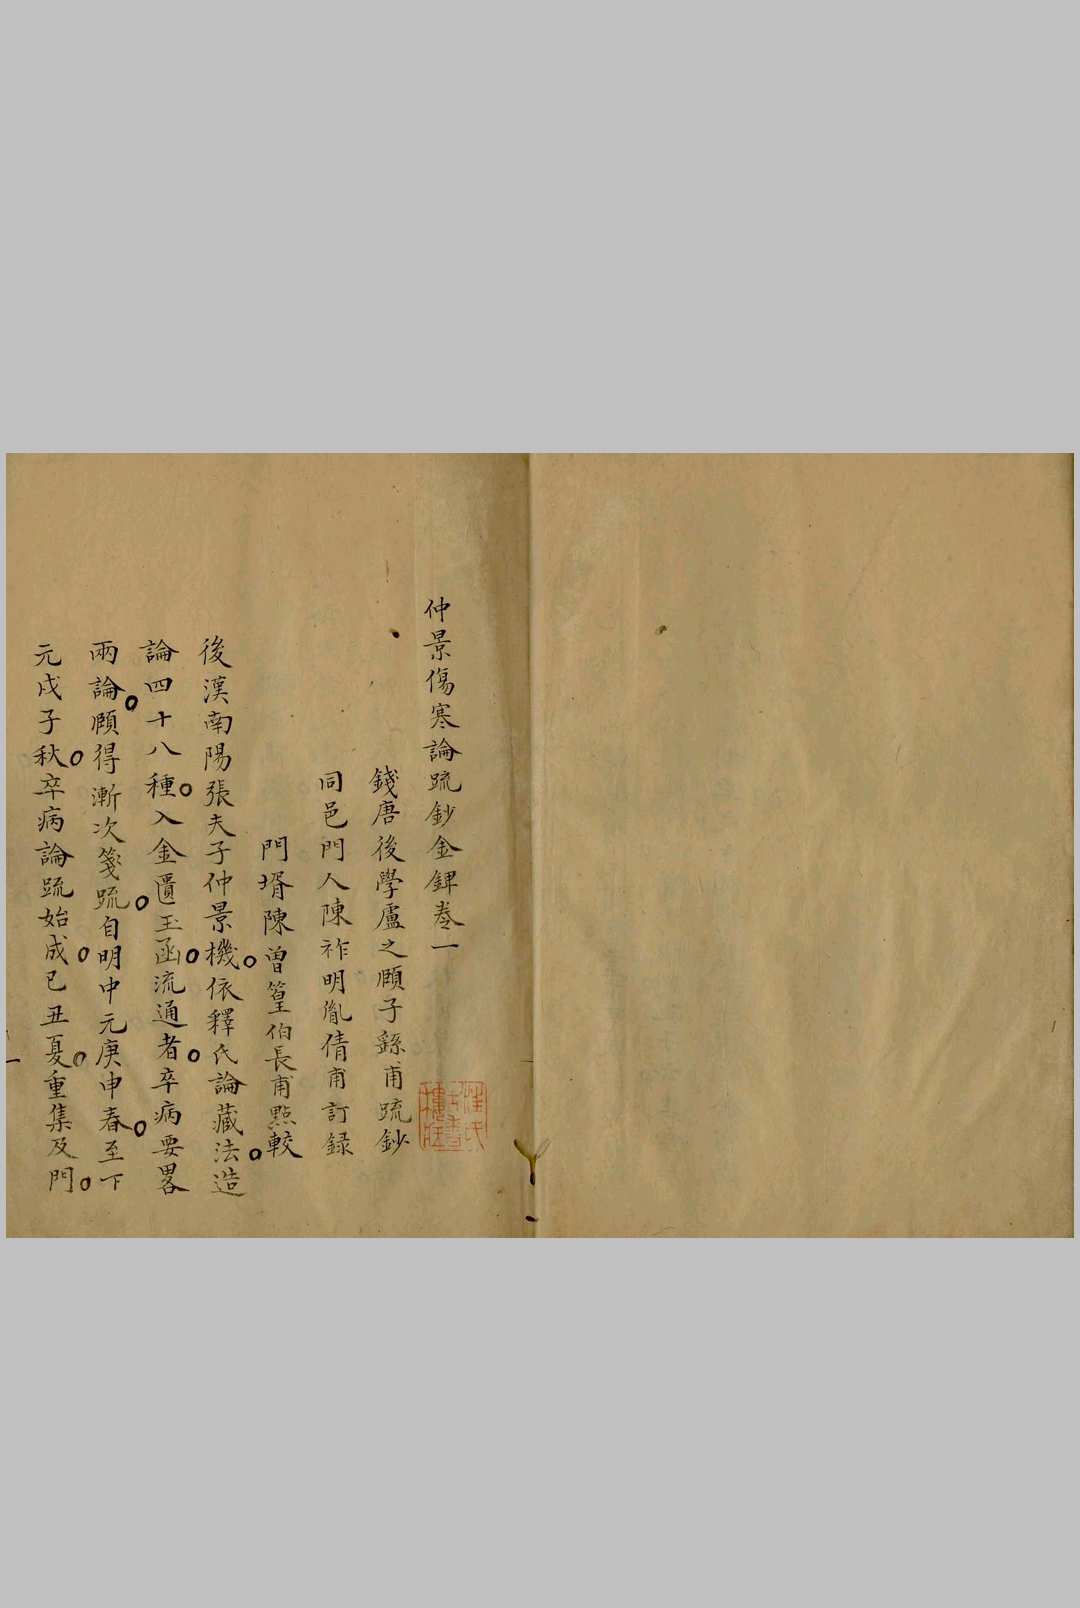 仲景傷寒論疏鈔金錍卷一
錢唐後學盧之頤子繇甫疏鈔
同邑門人陳祚明胤倩甫訂録
門壻陳曾篁伯長甫點較
後漢南陽張夫子仲景機依釋氏論藏法造
論四十八種入金匱玉函流通者卒病要畧
兩論頤得漸次箋疏自明中元庚申春至下
元戊子秋卒病論疏始成已丑夏重集及門